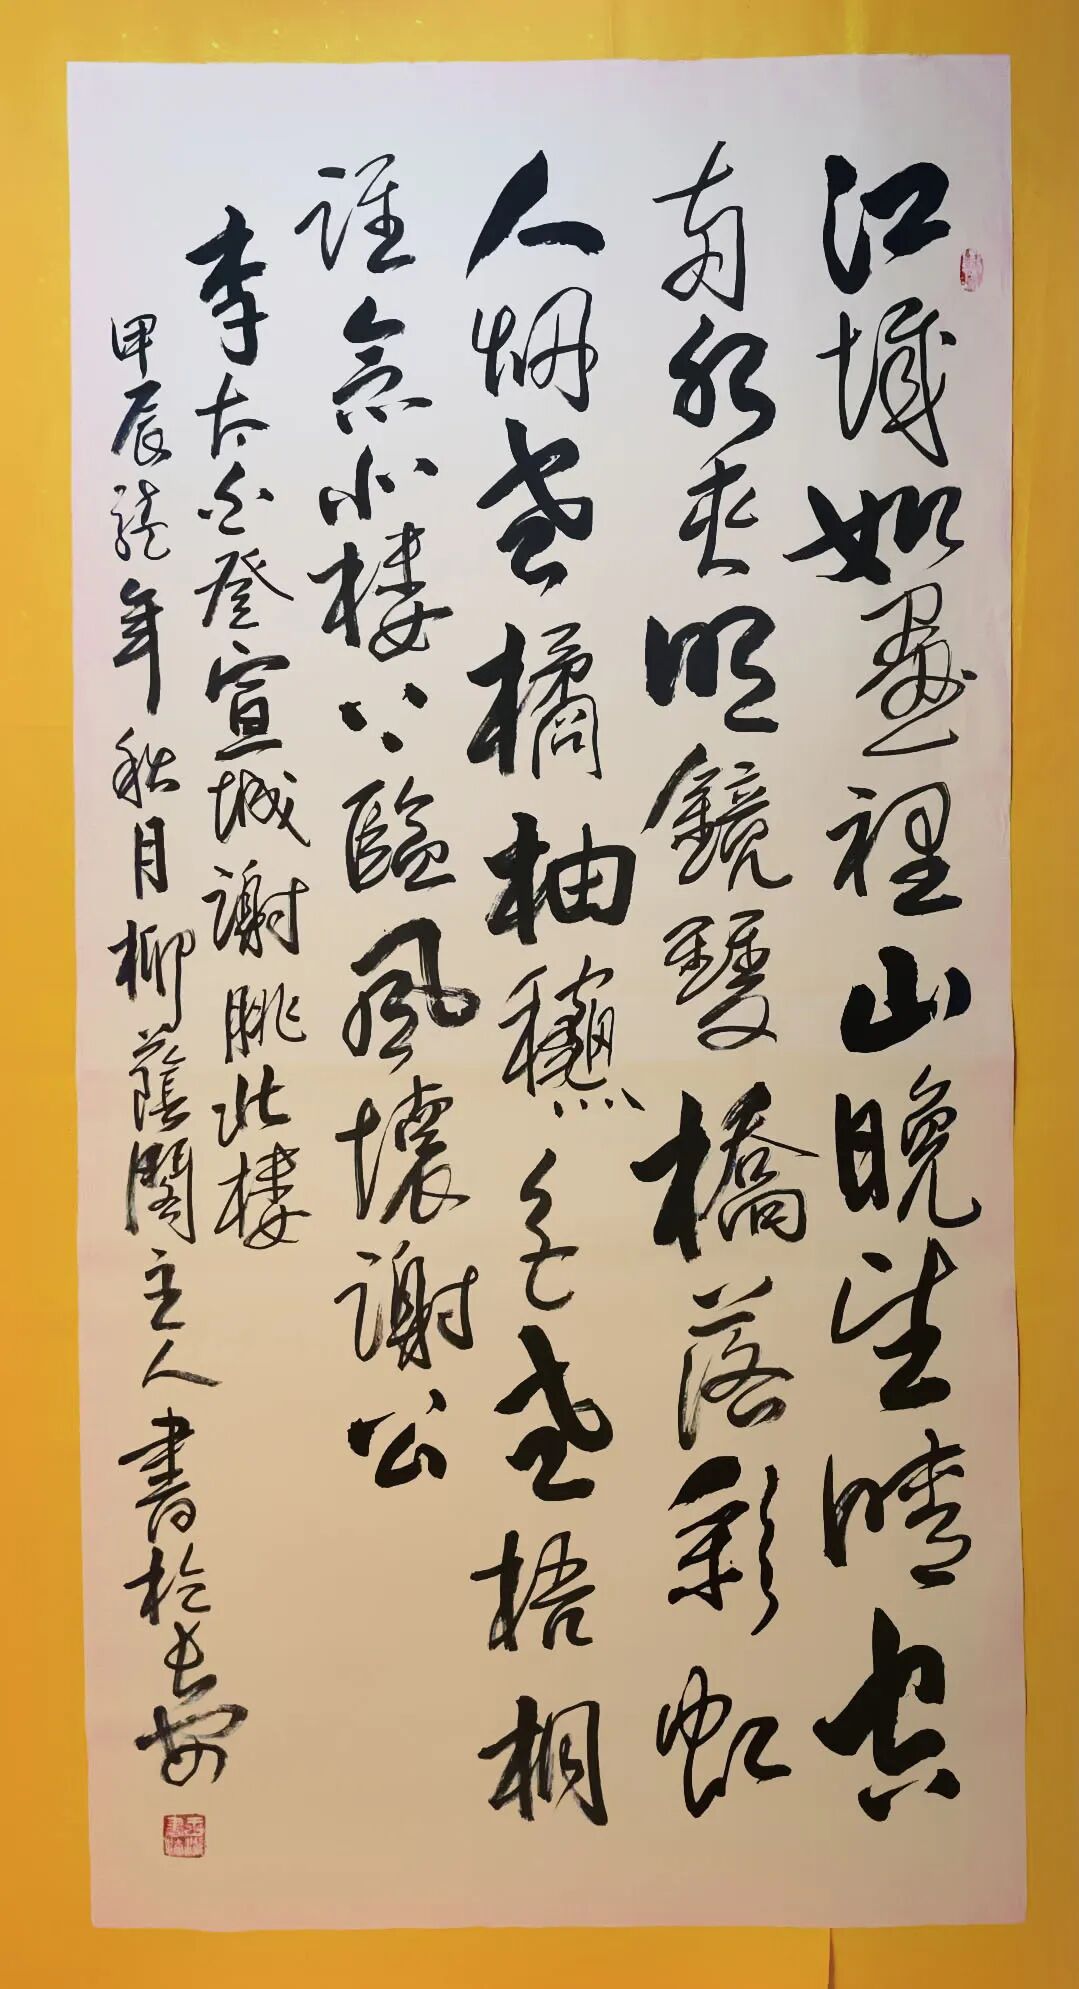 江城如畫裡山晚望晴空
両水夾明鏡雙橋落彩虹
人烟老橘柚龝色老梧桐
誰念北樓上臨風懷謝公
李太白登宣城謝朓北樓
甲辰龍年秋月柳蔭閣主人書於長安